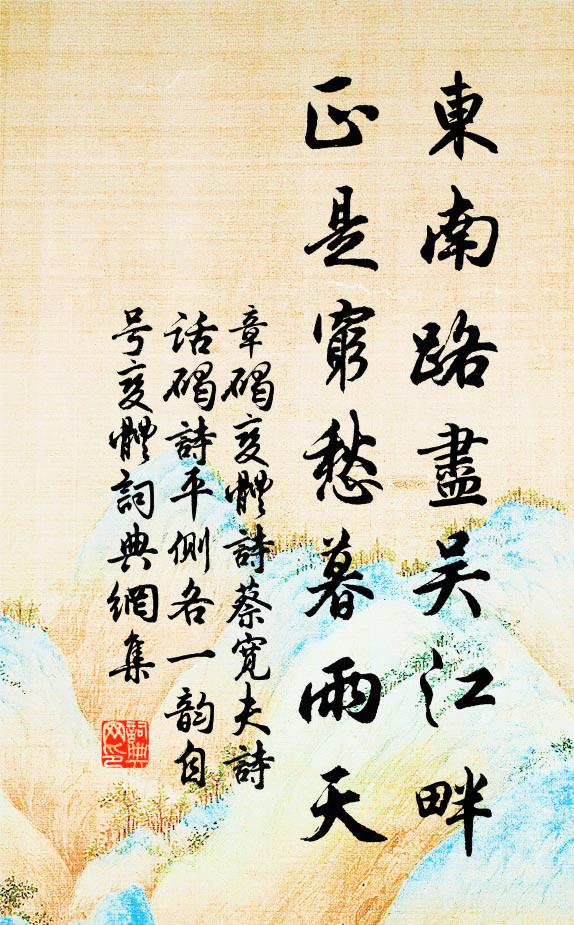 東南路盡吴江畔
正是窮愁暮雨天
章碣変體詩蔡寬夫詩
話碣詩平側各一韵自
号変體詞典網集
詞典
网印